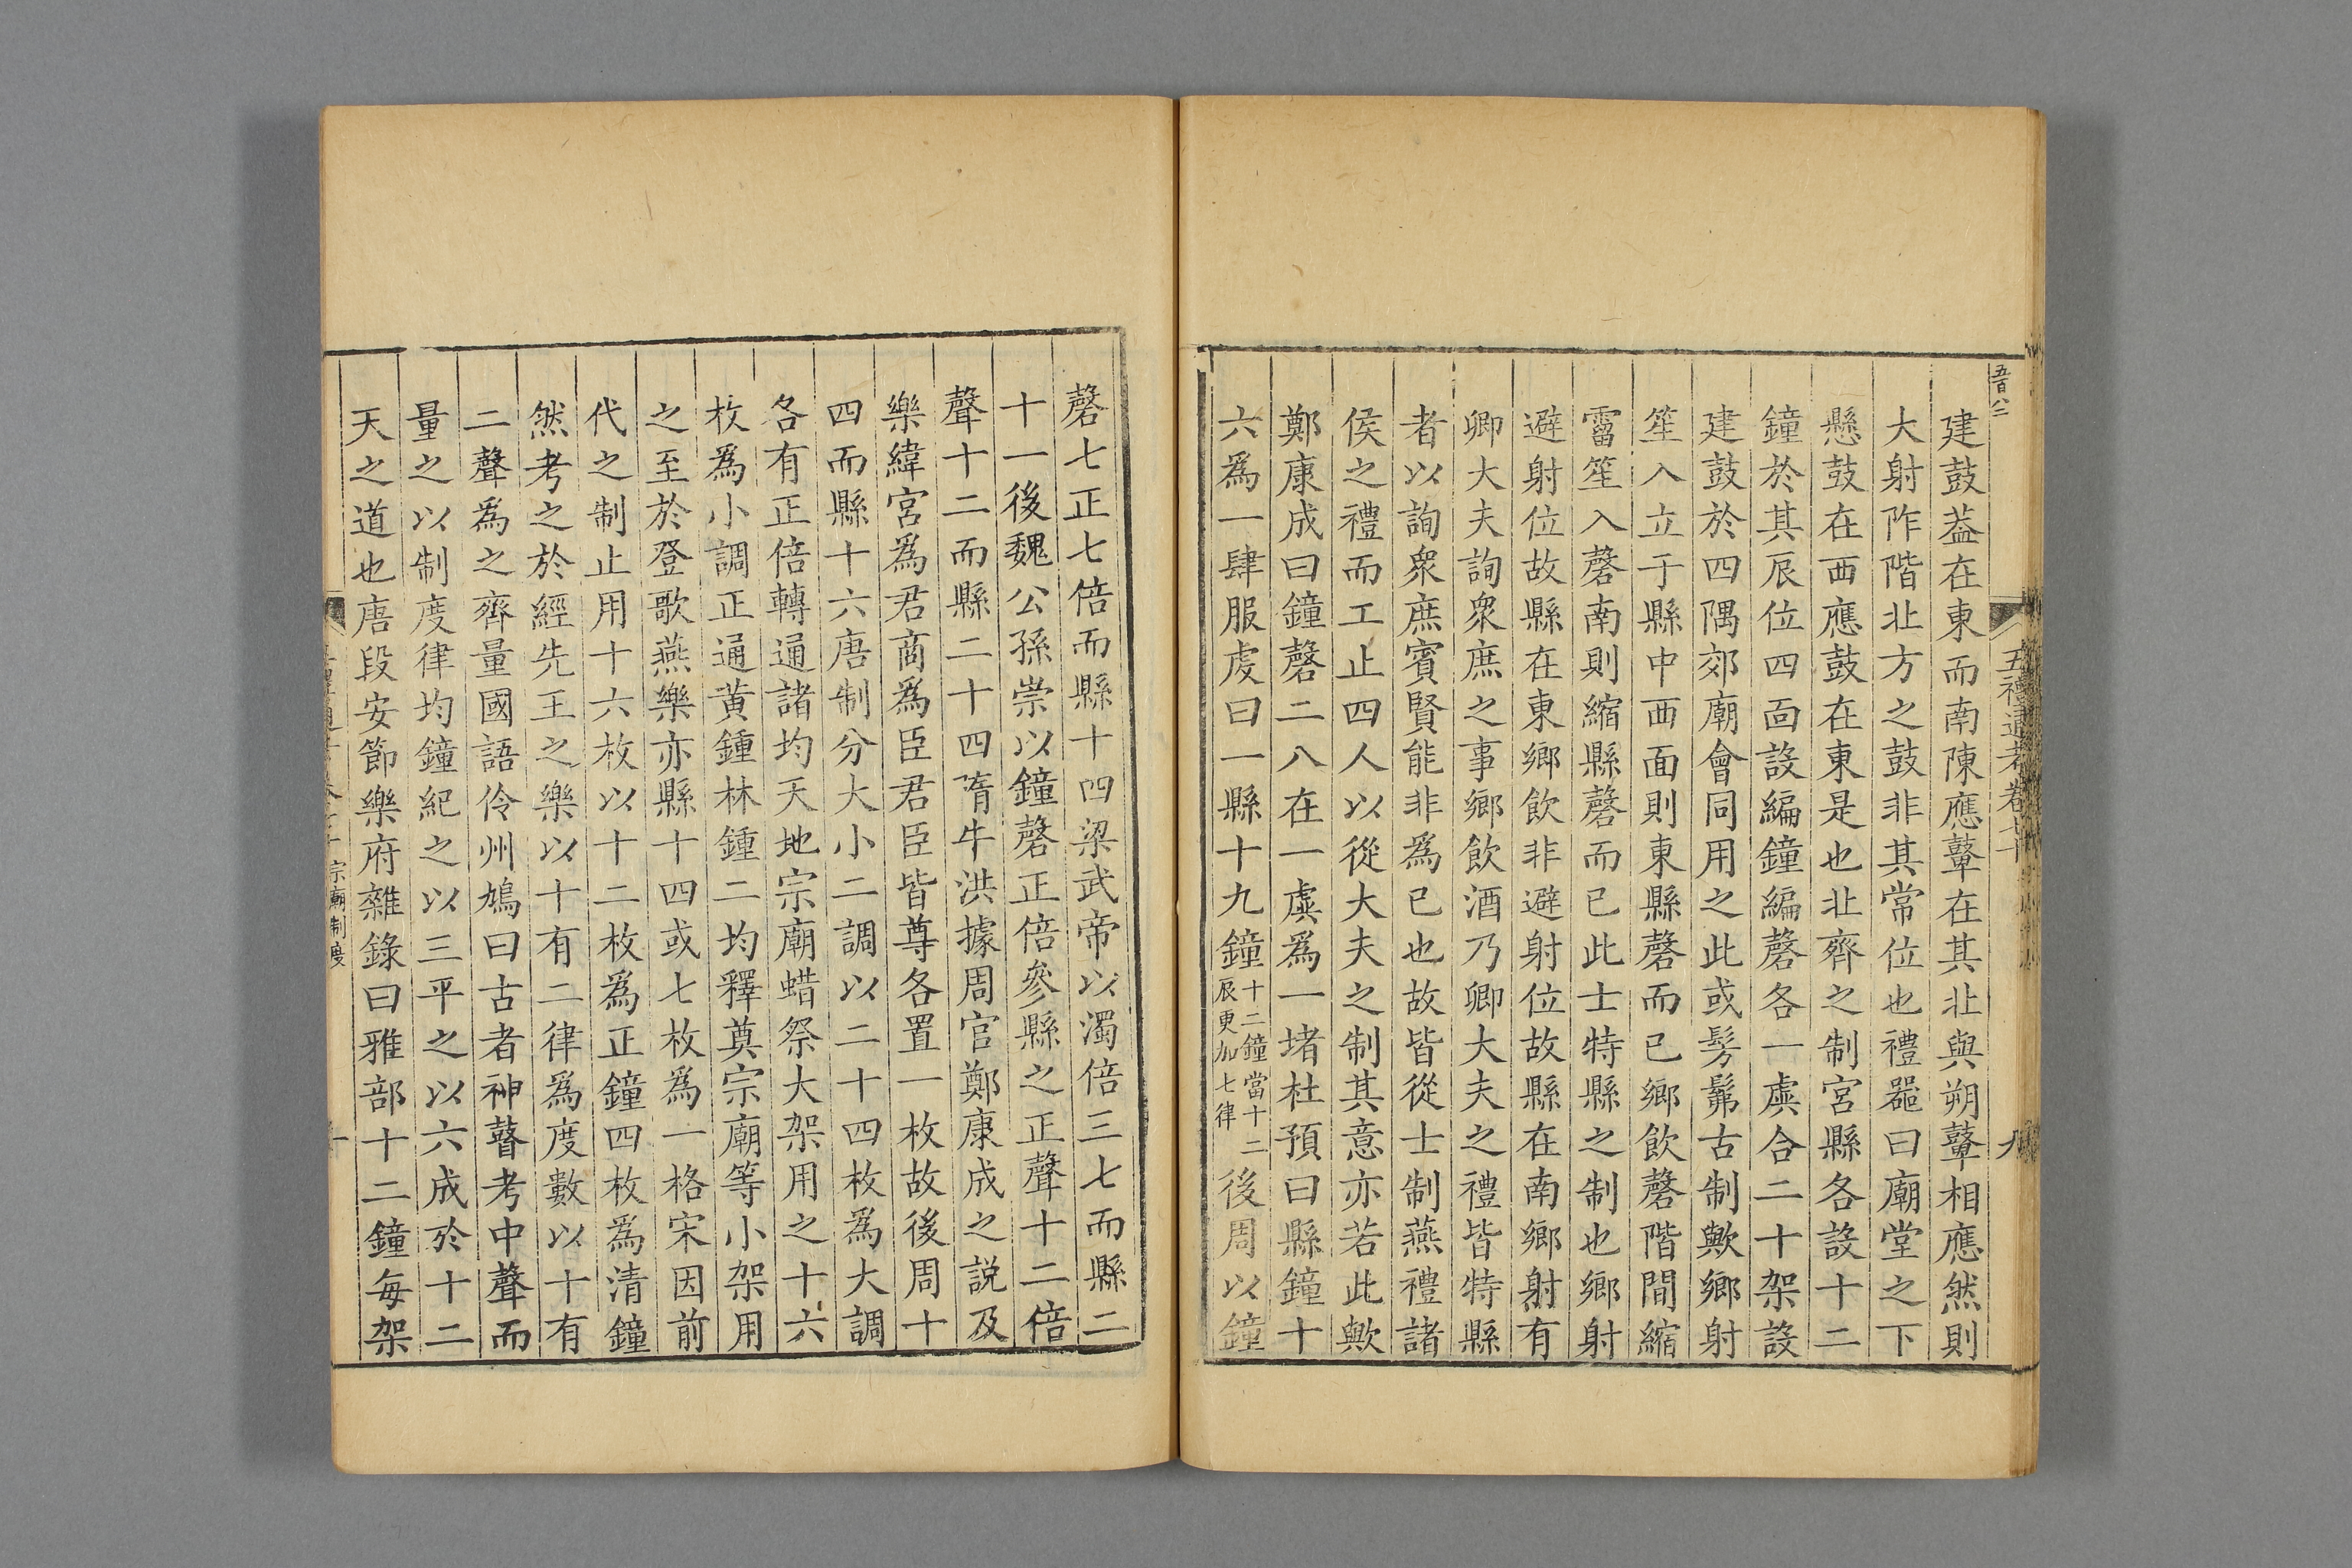 五百八二
五禮通考卷七十
九
建鼓葢在東而南陳應鼙在其北與朔鼙相應然則
大射阼階北方之鼓非其常位也禮器曰廟堂之下
懸鼓在西應鼓在東是也北齊之制宮縣各設十二
鐘於其辰位四面設編鐘編磬各一虡合二十架設
建鼓於四隅郊廟會同用之此或髣髴古制歟鄉射
笙入立于縣中西面則東縣磬而已鄉飲磬階間縮
霤笙入磬南則縮縣磬而已此士特縣之制也鄉射
避射位故縣在東鄉飲非避射位故縣在南鄉射有
卿大夫詢衆庶之事鄉飲酒乃卿大夫之禮皆特縣
者以詢衆庶賓賢能非爲已也故皆從士制燕禮諸
侯之禮而工止四人以從大夫之制其意亦若此歟
鄭康成曰鐘磬二八在一虡爲一堵杜預曰縣鐘十
六爲一肆服虔曰一縣十九鐘十二鐘當十二辰更加七律後周以鐘
磬七正七倍而縣十四梁武帝以濁倍三七而縣二
十一後魏公孫崇以鐘磬正倍參縣之正聲十二倍
聲十二而縣二十四隋牛洪據周官鄭康成之説及
樂緯宮爲君商爲臣君臣皆尊各置一枚故後周十
四而縣十六唐制分大小二調以二十四枚爲大調
各有正倍轉通諸均天地宗廟蜡祭大架用之十六
枚爲小調正通黄鍾林鍾二均釋奠宗廟等小架用
之至於登歌燕樂亦縣十四或七枚爲一格宋因前
代之制止用十六枚以十二枚爲正鐘四枚爲清鐘
然考之於經先王之樂以十有二律爲度數以十有
二聲爲之齊量國語伶州鳩曰古者神瞽考中聲而
量之以制度律均鐘紀之以三平之以六成於十二
天之道也唐段安節樂府雜錄曰雅部十二鐘每架
宗廟制度